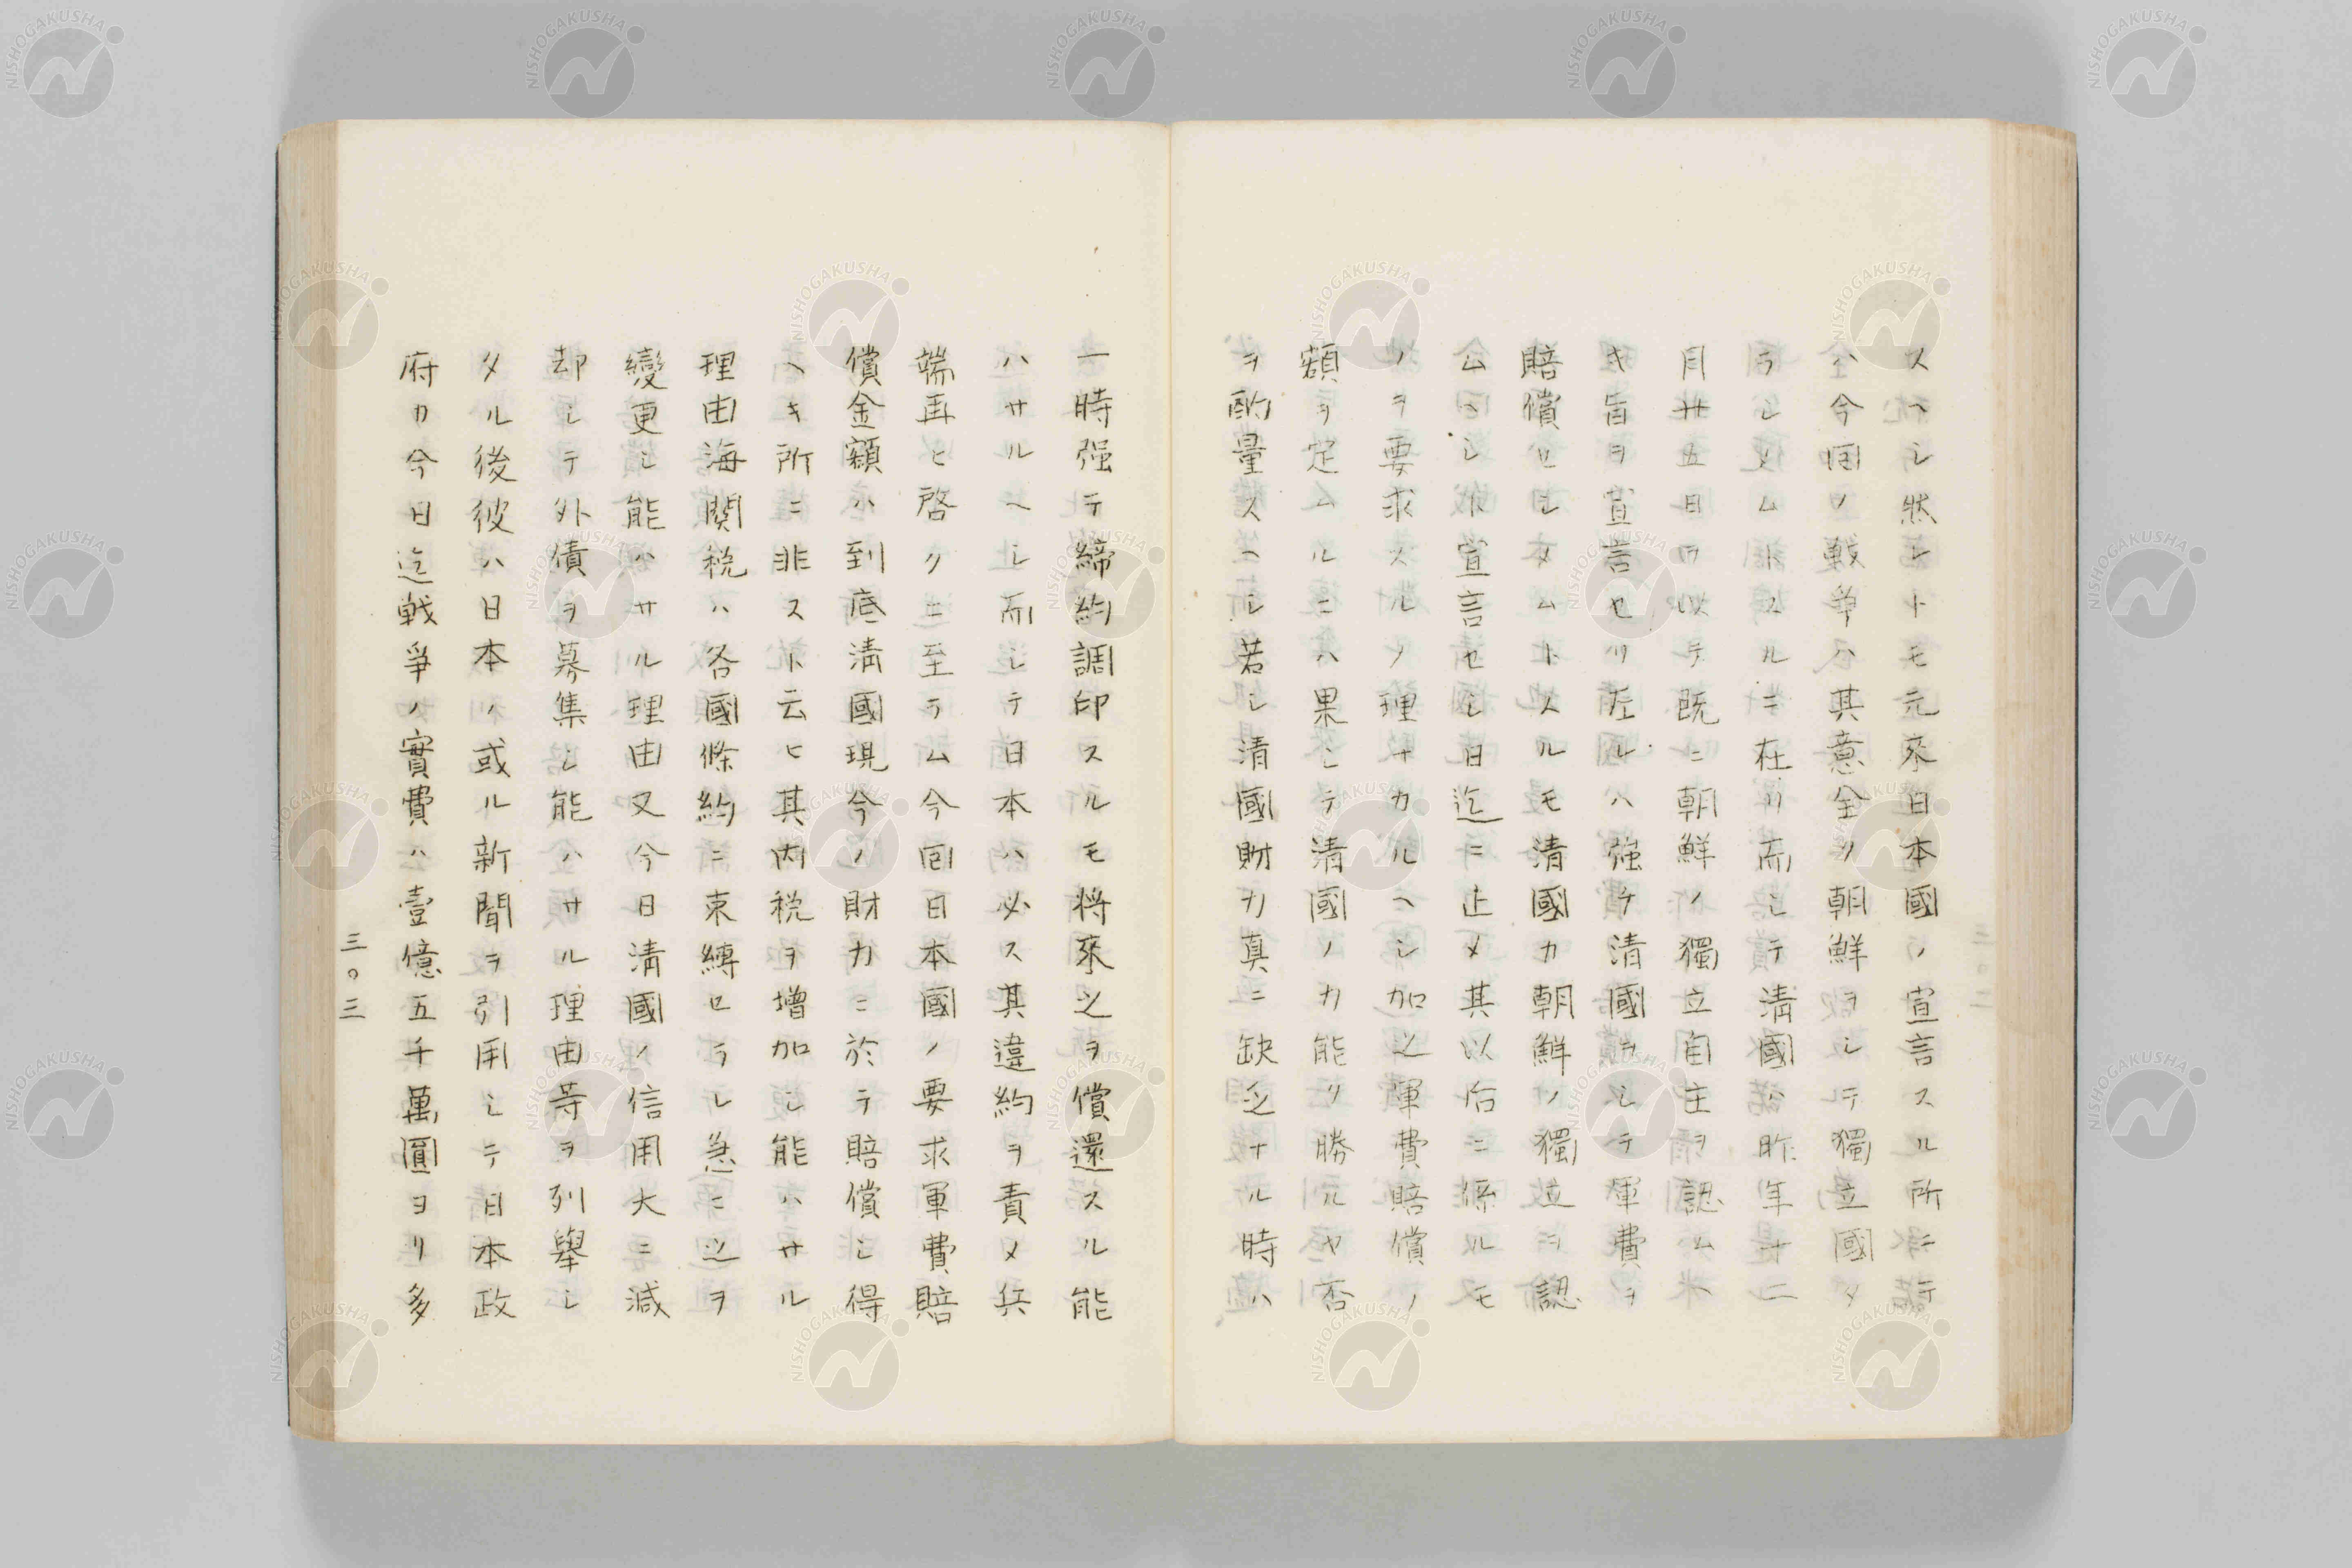 スヘシ然レトモ元來日本國ノ宣言スル所ニテ
ハ今回ノ戰爭ハ其意全ク朝鮮ヲシテ獨立國タ
ラシメムトスルニ在リ而シテ清國ハ昨年十一
月廿五日ヲ以テ既ニ朝鮮ノ獨立自主ヲ認ムヘ
キ旨ヲ宣言セリ左レハ強ケ清國ヲシテ軍費ヲ
賠償セシメムトスルモ清國カ朝鮮ノ獨立ヲ認
ムヘシト宣言セシ日迄ニ止メ其以后ニ係ルモ
ノヲ要求スルノ理ナカルヘシ加之軍費賠償ノ
額ヲ定ムルニハ果シテ清國ノ力能ク勝ルヤ否
ヲ酌量スヘシ若シ清國財力真ニ缺乏ナル時ハ
一時强テ締約調印スルモ將來之ヲ償還スル能
ハサルヘシ而シテ日本ハ必ス其違約ヲ責メ兵
端再ヒ啓クニ至ラム今回日本國ノ要求軍費賠
償金額ハ到底清國現今ノ財力ニ於テ賠償シ得
ヘキ所ニ非スト云ヒ其內税ヲ增加シ能ハサル
理由海關税ハ各國條約ニ束縛セラレ急ニ之ヲ
變更シ能ハサル理由又今日清國ノ信用大ニ減
却シテ外債ヲ募集シ能ハサル理由等ヲ列擧シ
タル後彼ハ日本ノ或ル新聞ヲ引用シテ日本政
府カ今日迄戦爭ノ實費ハ壹億五千萬圓ヨリ多
三〇三
NISHOGAKUSHA